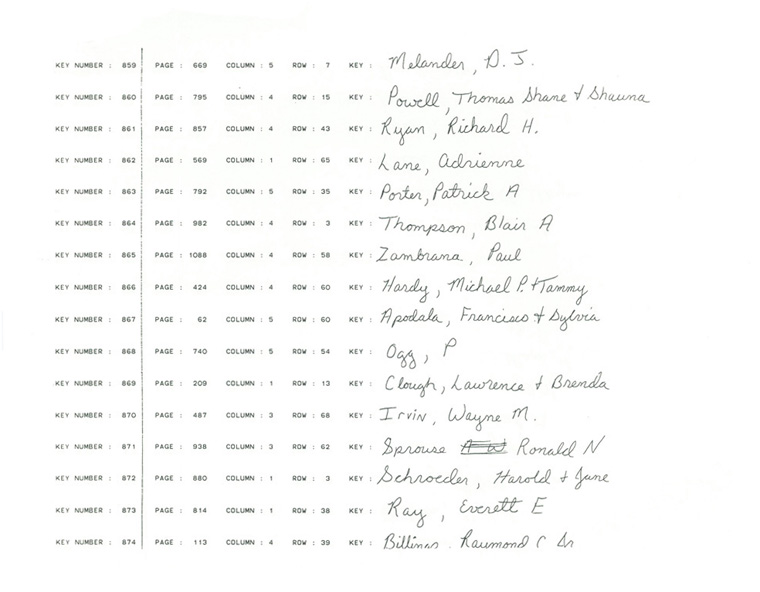 KEY NUMBER : 859 PAGE : 669 COLUMN : 5 ROW : 7 KEY : Melander, D. J.
KEY NUMBER : 860 PAGE : 795 COLUMN : 4 ROW : 15 KEY : Powell, Thomas Shane & Shauna
KEY NUMBER : 861 PAGE : 857 COLUMN : 4 ROW : 43 KEY : Ryan, Richard H.
KEY NUMBER : 862 PAGE : 569 COLUMN : 1 ROW : 65 KEY : Lane, Adrienne
KEY NUMBER : 863 PAGE : 792 COLUMN : 5 ROW : 35 KEY : Porter, Patrick A
KEY NUMBER : 864 PAGE : 982 COLUMN : 4 ROW : 3 KEY : Thompson, Blair A
KEY NUMBER : 865 PAGE : 1088 COLUMN : 4 ROW : 58 KEY : Zambrana, Paul
KEY NUMBER : 866 PAGE : 424 COLUMN : 4 ROW : 60 KEY : Hardy, Michael P. & Tammy
KEY NUMBER : 867 PAGE : 62 COLUMN : 5 ROW : 60 KEY : Apodala, Francisco & Sylvia
KEY NUMBER : 868 PAGE : 740 COLUMN : 5 ROW : 54 KEY : Ogg, P
KEY NUMBER : 869 PAGE : 209 COLUMN : 1 ROW : 13 KEY : Clough, Lawrence & Brenda
KEY NUMBER : 870 PAGE : 487 COLUMN : 3 ROW : 68 KEY : Irvin, Wayne M.
KEY NUMBER : 871 PAGE : 938 COLUMN : 3 ROW : 62 KEY : Sprouse Ronald N
KEY NUMBER : 872 PAGE : 880 COLUMN : 1 ROW : 3 KEY : Schroeder, Harold & June
KEY NUMBER : 873 PAGE : 814 COLUMN : 1 ROW : 38 KEY : Ray, Everett E
KEY NUMBER : 874 PAGE : 113 COLUMN : 4 ROW : 39 KEY : Raymond C